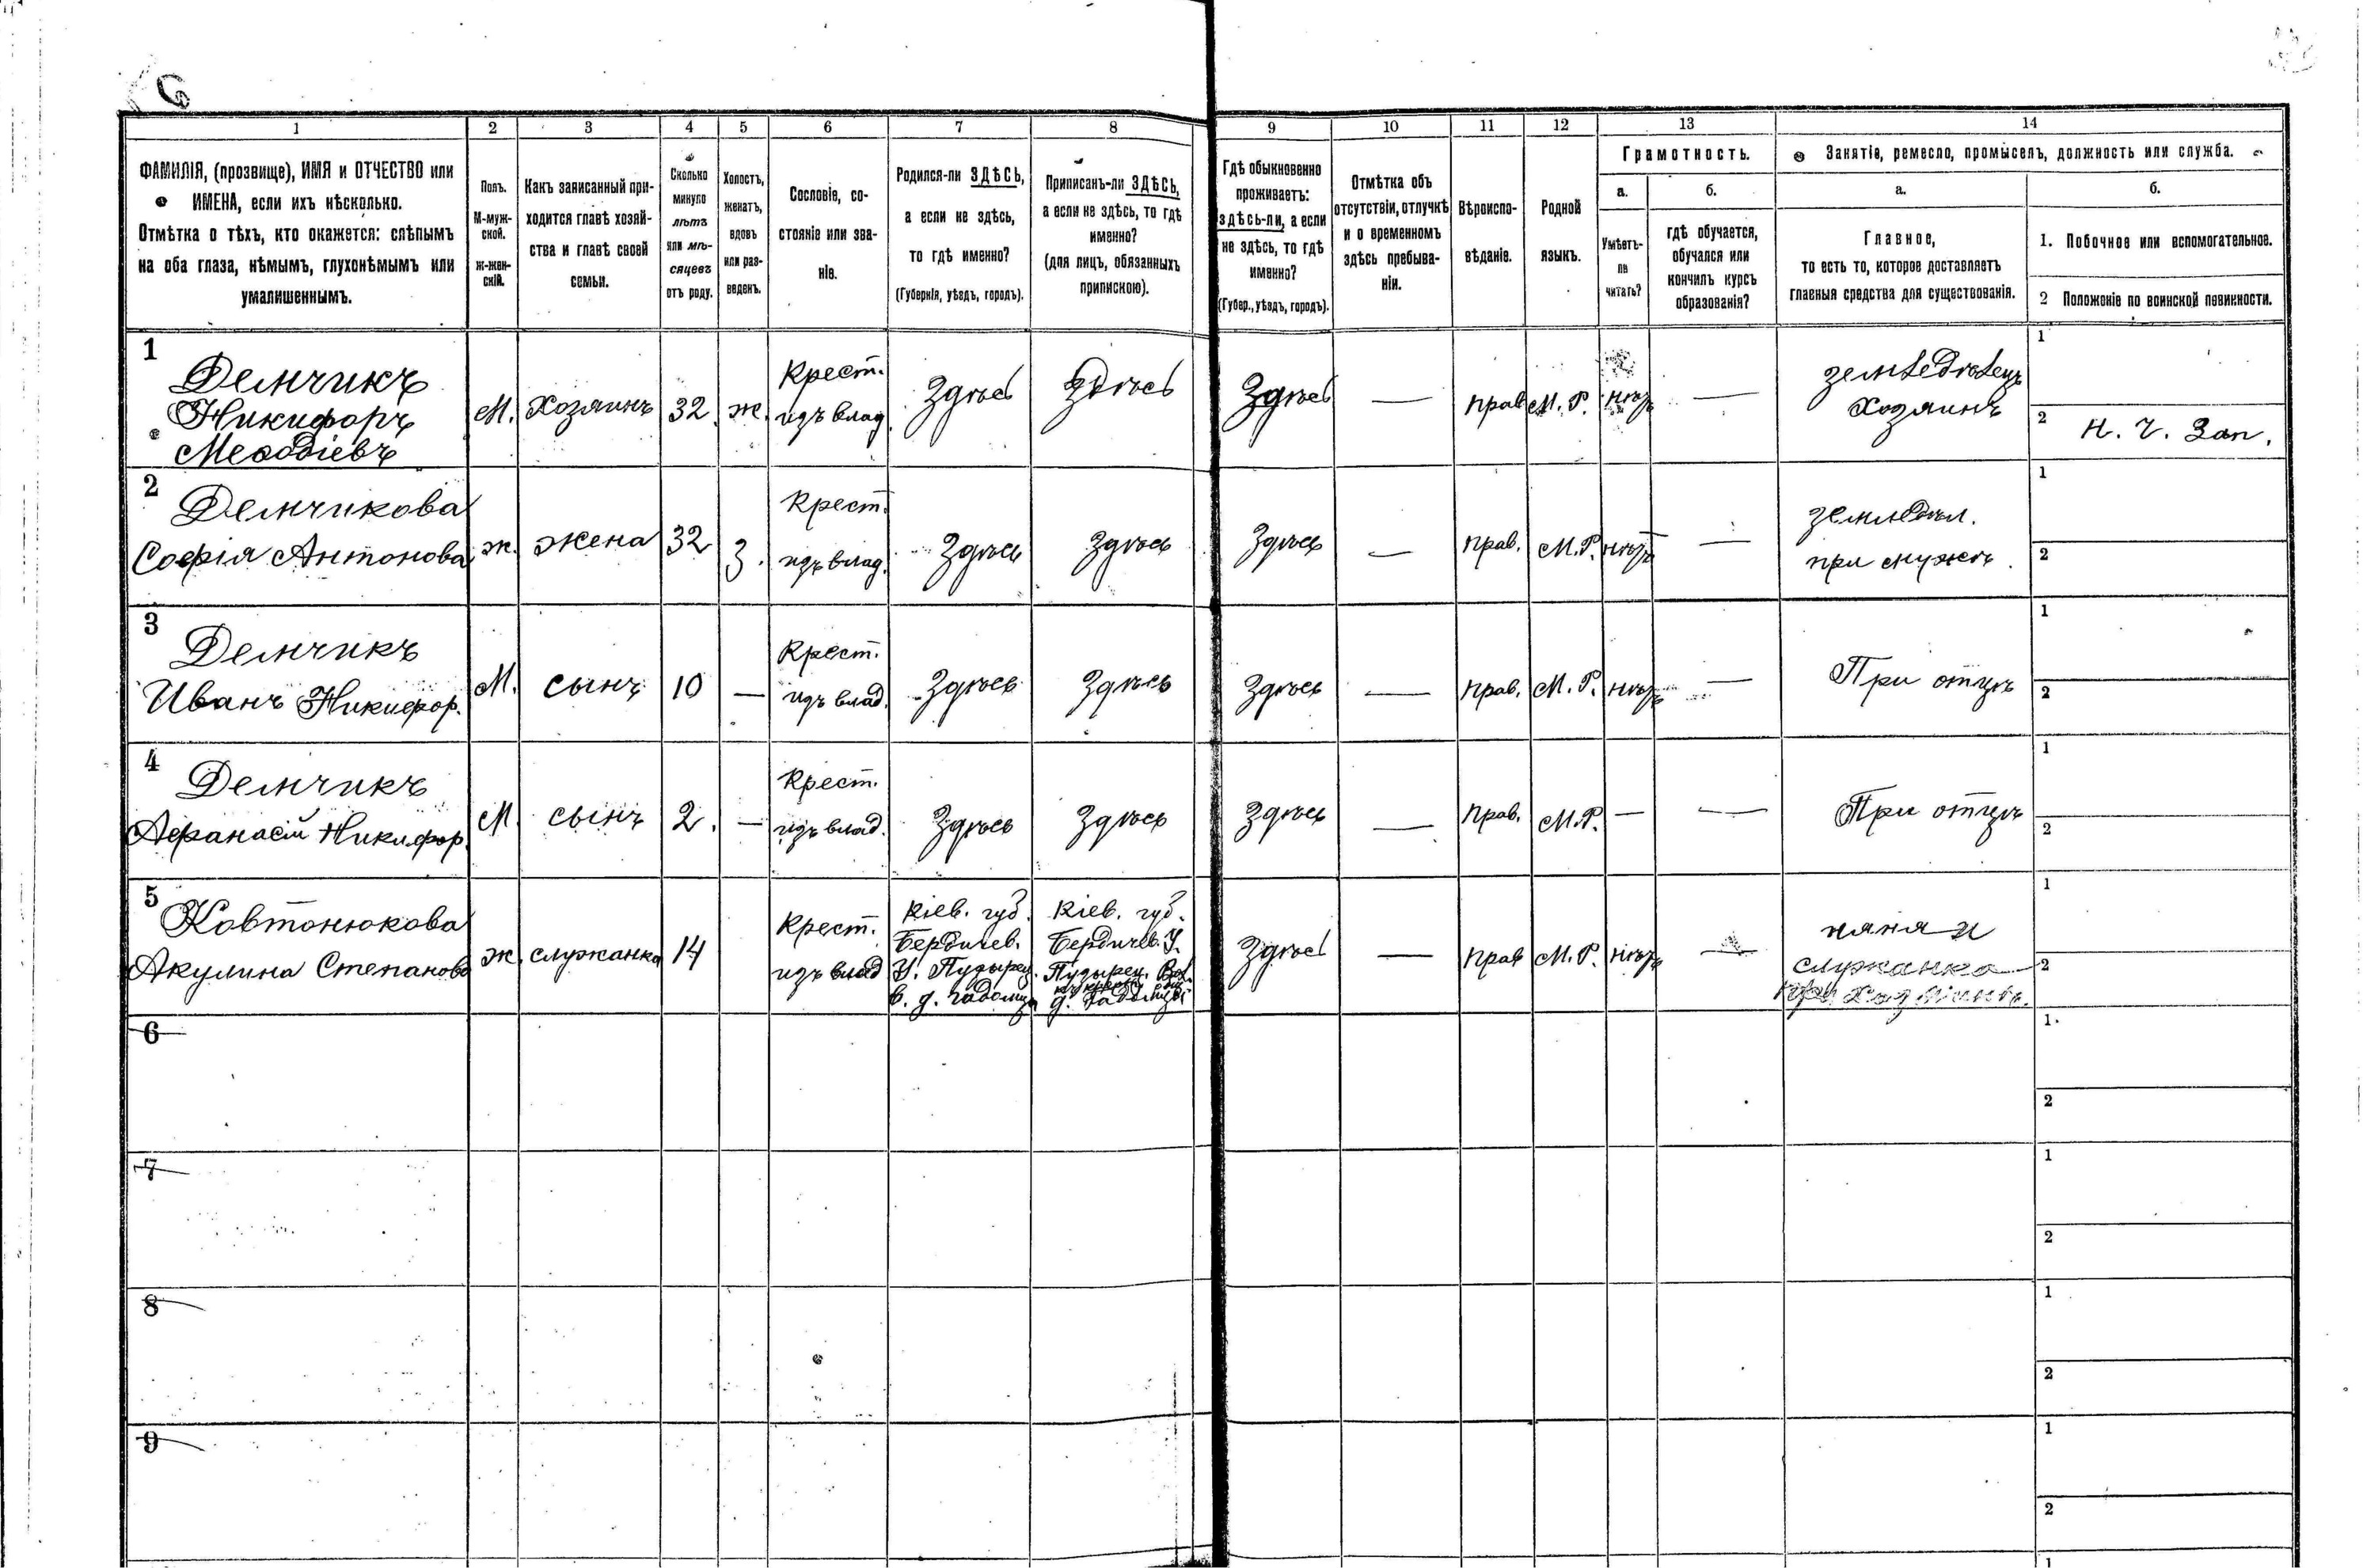 6
1 2 3 4 5 6 7 8 9 10 11 12 13 14
ФАМИЛІЯ, (прозвище), ИМЯ и ОТЧЕСТВО или
ИМЕНА, если ихъ нѣсколько.
Отмѣтка о тѣхъ, кто окажется: слѣпымъ
на оба глаза, нѣмымъ, глухонѣмымъ или
умалишеннымъ.
Полъ.
М-муж-
ской.
ж-жен-
скій.
Какъ записанный при-
ходится главѣ хозяй-
ства и главѣ своей
семьи.
Сколько
минуло
лѣтъ
или мѣ-
сяцевъ
отъ роду.
Холостъ,
женатъ,
вдовъ
или раз-
веденъ.
Сословіе, со-
стояніе или зва-
ніе.
Родился-ли ЗДѢСЬ,
а если не здѣсь,
то гдѣ именно?
(Губернія, уѣздъ, городъ).
Приписанъ-ли ЗДѢСЬ,
а если не здѣсь, то гдѣ
именно?
(для лицъ, обязанныхъ
припискою).
Гдѣ обыкновенно
проживаетъ:
здѣсь-ли, а если
не здѣсь, то гдѣ
именно?
(Губер., уѣздъ, городъ).
Отмѣтка объ
отсутствіи, отлучкѣ
и о временномъ
здѣсь пребыва-
ніи.
Вѣроиспо-
вѣданіе.
Родной
языкъ.
Грамотность.
а.
Умѣетъ-
ли
читать?
б.
гдѣ обучается,
обучался или
кончилъ курсъ
образованія?
Занятіе, ремесло, промыселъ, должность или служба.
а.
Главное,
то есть то, которое доставляетъ
главныя средства для существованія.
б.
1. Побочное или вспомогательное.
2 Положеніе по воинской повинности.
1
Демчикъ
Никифоръ
Меѳодіевъ
М.
Хозяинъ
32
ж.
Крест.
изъ влад.
Здѣсь
Здѣсь
Здѣсь
—
Прав.
М. Р.
нѣтъ
—
земледѣлецъ
Хозяинъ
1
2 Н. Ч. Зап.
2
Демчикова
Софія Антонова
ж.
жена
32
З.
Крест.
изъ влад.
Здѣсь
Здѣсь
Здѣсь
—
Прав.
М. Р.
нѣтъ
—
земледѣл.
при мужѣ.
1
2
3
Демчикъ
Иванъ Никифор.
М.
сынъ
10
—
Крест.
изъ влад.
Здѣсь
Здѣсь
Здѣсь
—
Прав.
М. Р.
нѣтъ
—
При отцѣ
1
2
4
Демчикъ
Афанасій Никифор.
М.
сынъ
2.
—
Крест.
изъ влад.
Здѣсь
Здѣсь
Здѣсь
—
Прав.
М. Р.
—
—
При отцѣ
1
2
5
Ковтонюкова
Акулина Степанова
ж.
служанка
14
Крест.
изъ влад
Кіев. губ.
Бердичев.
У. Пузырец.
в. д.
Кіев. губ.
Бердичев. У.
Пузырец. Вол.
д.
Здѣсь
—
Прав
М. Р.
нѣтъ
—
няня и
служанка
при хозяинѣ.
1
2
6
1
2
7
1
2
8
1
2
9
1
2
1